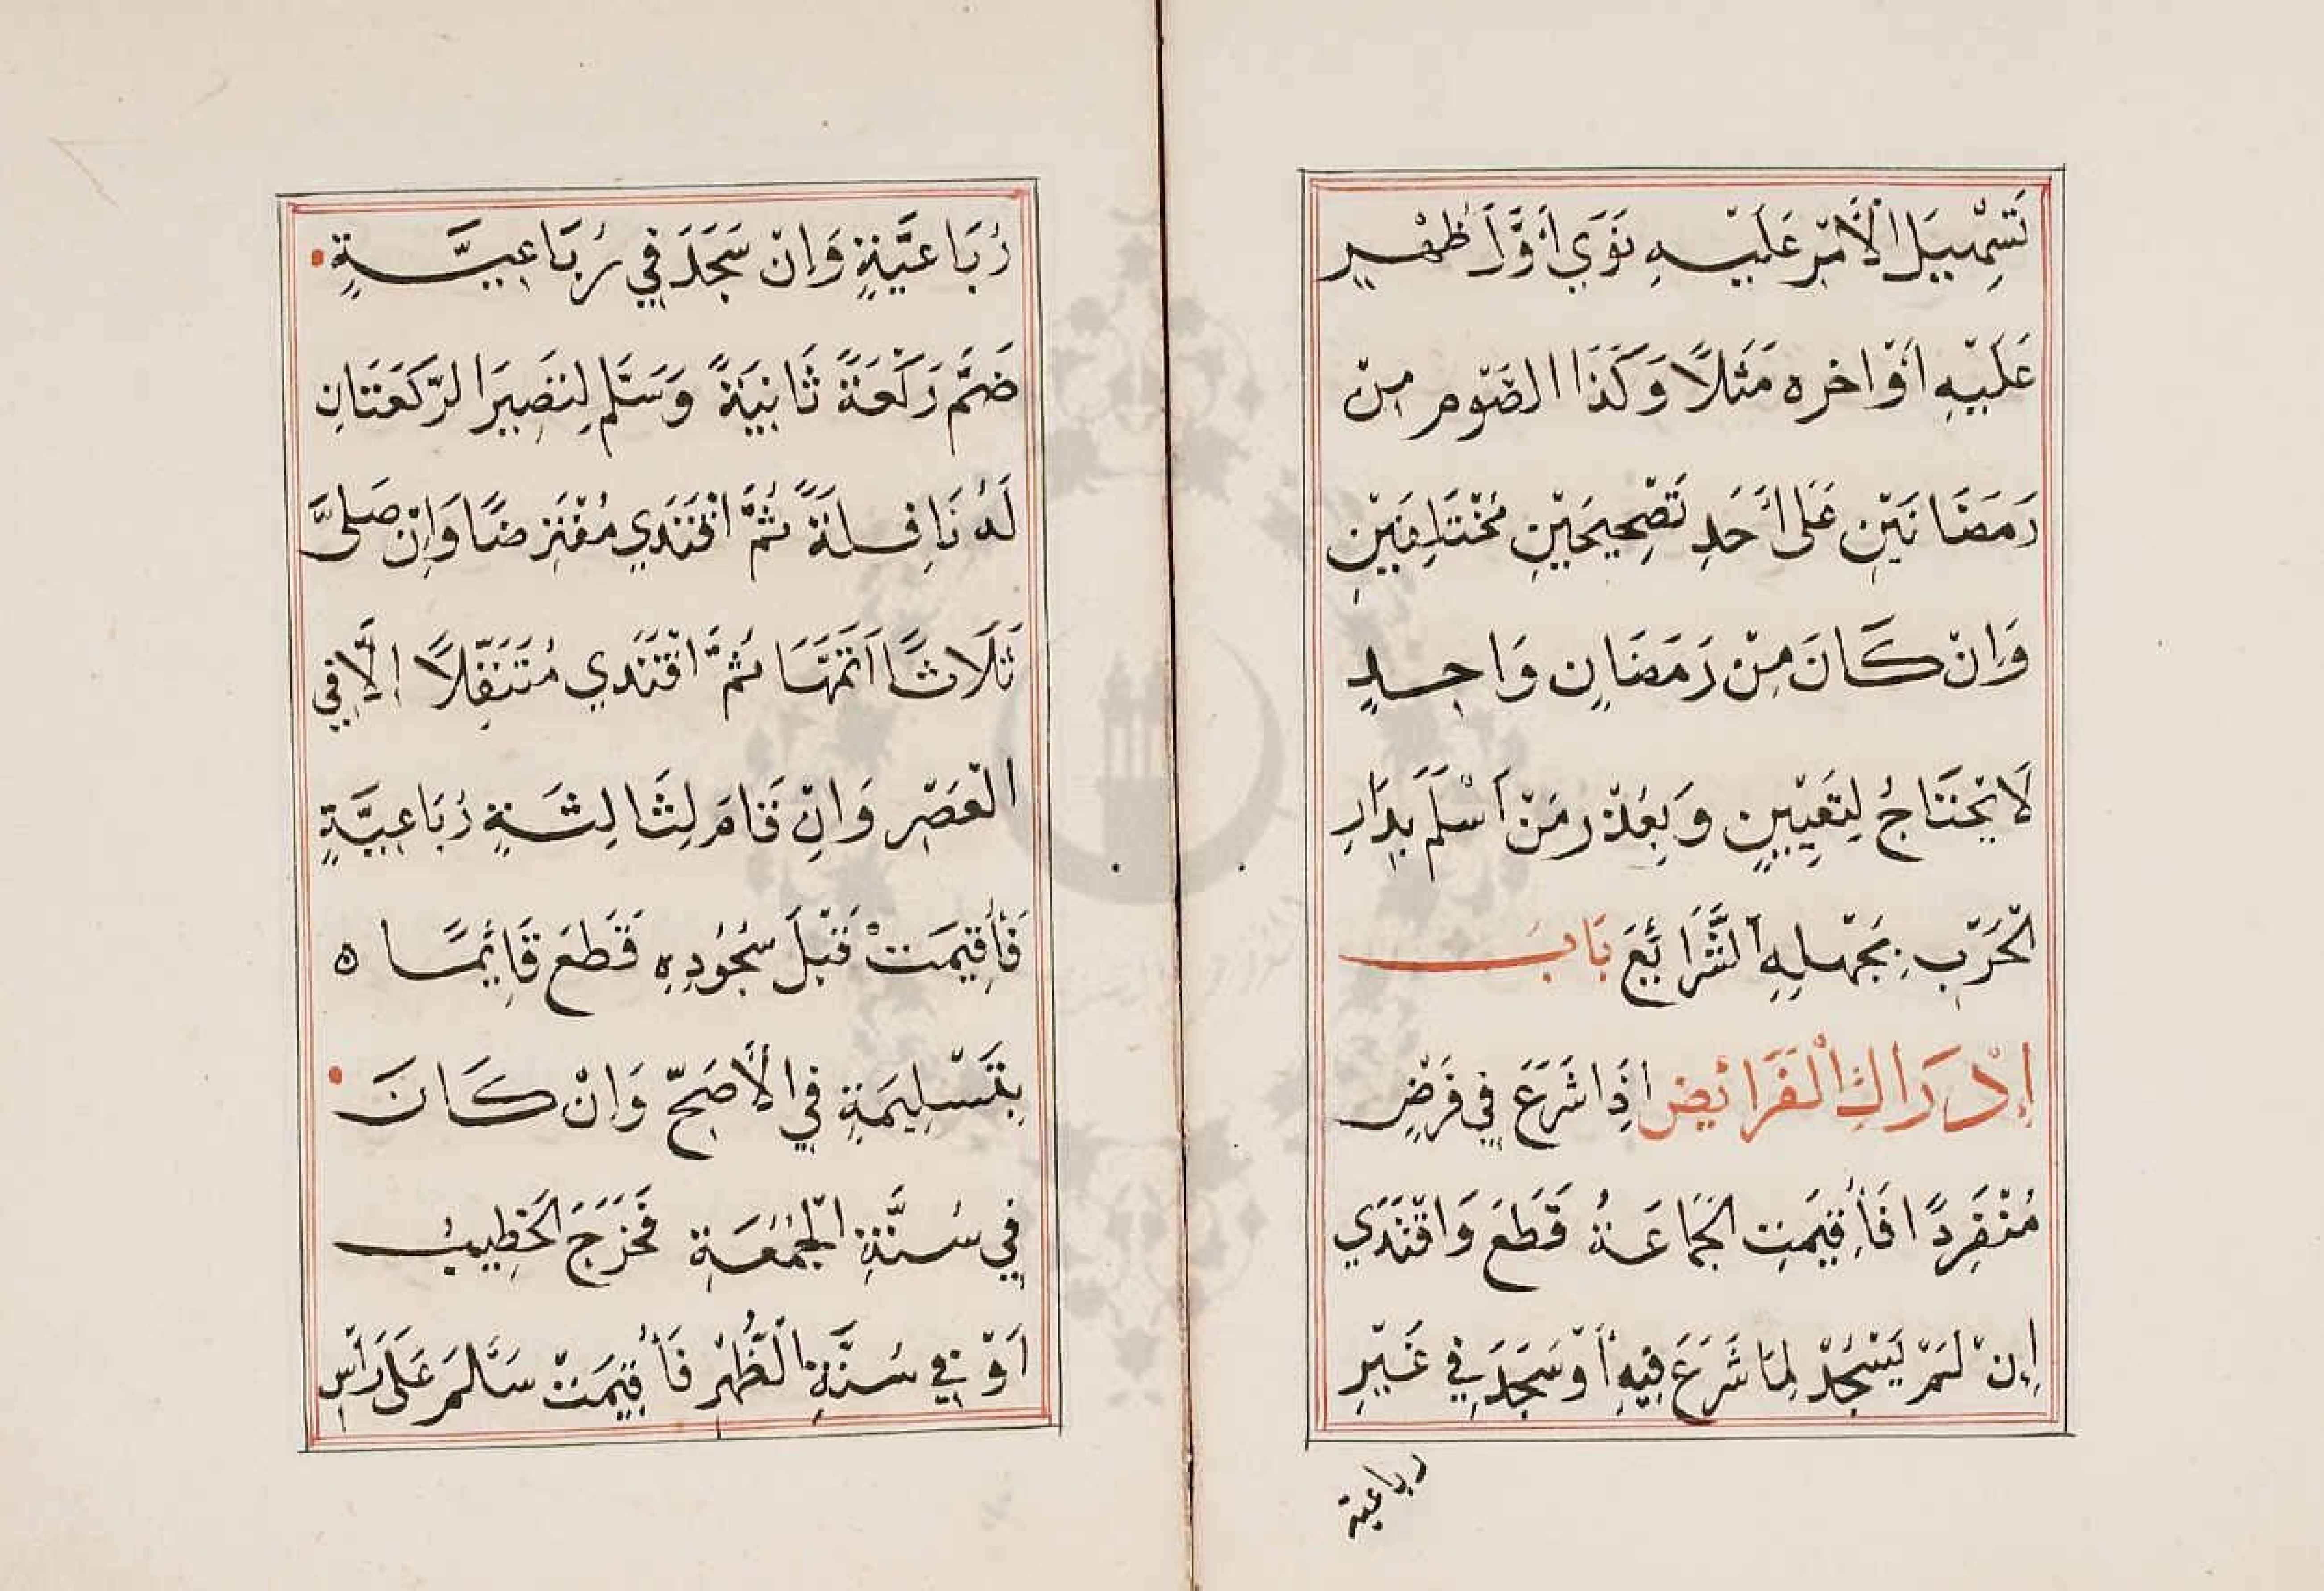 تَسْهِيلَ الْأَمْرِ عَلَيْهِ نَوَي أَوَّلَ ظُهْرٍ
عَلَيْهِ أَوْ اخره مَثَلًا وَكَذَا الصَّوم مِنْ
رَمَضَانَيْنِ عَلَى أَحَدِ تَصْحِيحَيْنِ مُخْتَلِفَيْنِ
وَإنْ كَانَ مِنْ رَمَضَانٍ وَاحِدٍ
لَا يَحْتَاجُ لِتَعْيِينٍ وَيُعْذَر مَنْ أَسْلَمَ بِدَارِ
الْحَرْبِ بِجَهْلِهِ الشَّرَائِعَ بَابُ
إِدْرَاكِ الْفَرَائِضِ إذَا شَرَعَ فِي فَرْضٍ
مُنْفَرِدًا فَأُقِيمَتِ الجَمَاعَةُ قَطَعَ وَاقْتَدَي
إِنْ لَمْ يَسْجُدْ لِمَا شَرَعَ فِيهِ أَوْ سَجَدَ فِي غَيْرِ
رباعية
رُبَاعِيَّةٍ وَإنْ سَجَدَ فِي رُبَاعِيَّةٍ
ضَمَّ رَكْعَةً ثَانِيَةً وَسَلَّمَ لِتَصِيرَ الرَّكْعَتَانِ
لَهُ نَافِلَةً ثُمَّ اقْتَدَي مُفْتَرِضًا وَإِنْ صَلَّى
ثَلَاثًا أَتَمَّهَا ثُمَّ اقْتَدَي مُتَنَفِّلًا إلَّا فِي
الْعَصْرِ وَإنْ قَامَ لِثَالِثَةِ رُبَاعِيَّةٍ
فَأُقِيمَتْ قَبْلَ سُجُودِهِ قَطَعَ قَائِمًا ه
بِتَسْلِيمَةٍ فِي الْأَصَحِّ وَإنْ كَانَ
فِي سُنَّةِ الْجُمُعَةِ فَخَرَجَ الْخَطِيبُ
أَوْ فِي سُنَّةِ الظُّهْرِ فَأُقِيمَتْ سَلَّمَ عَلَى رَأْسِ